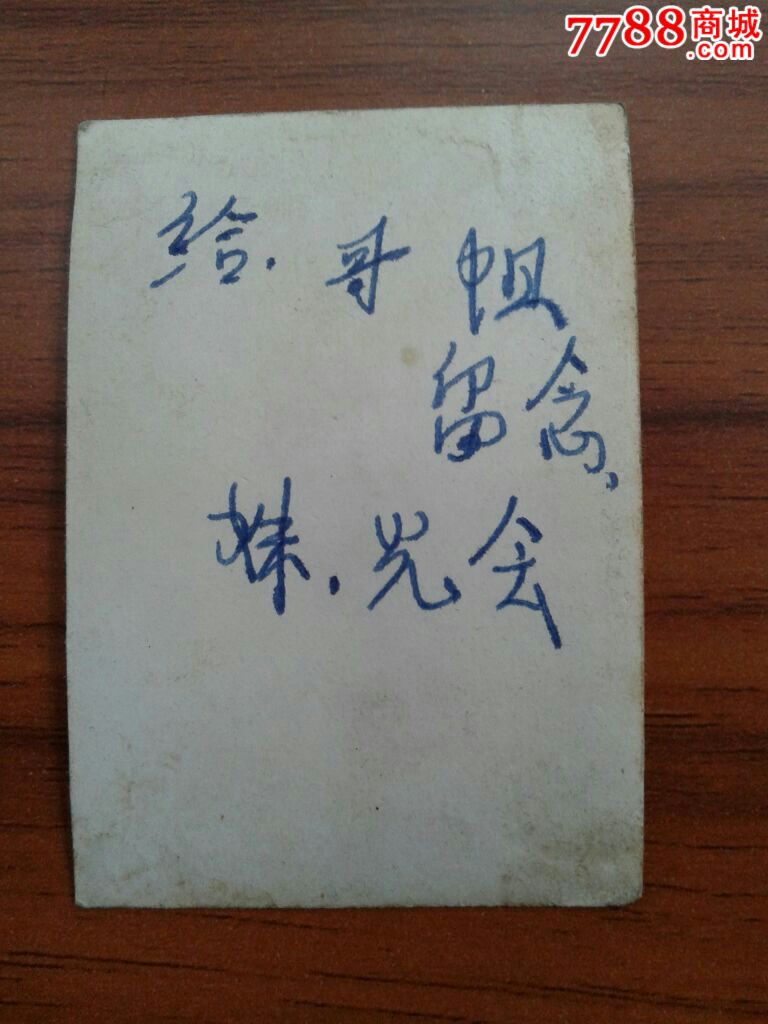 7788商城
.com
给.哥姐
留念.
妹.光会